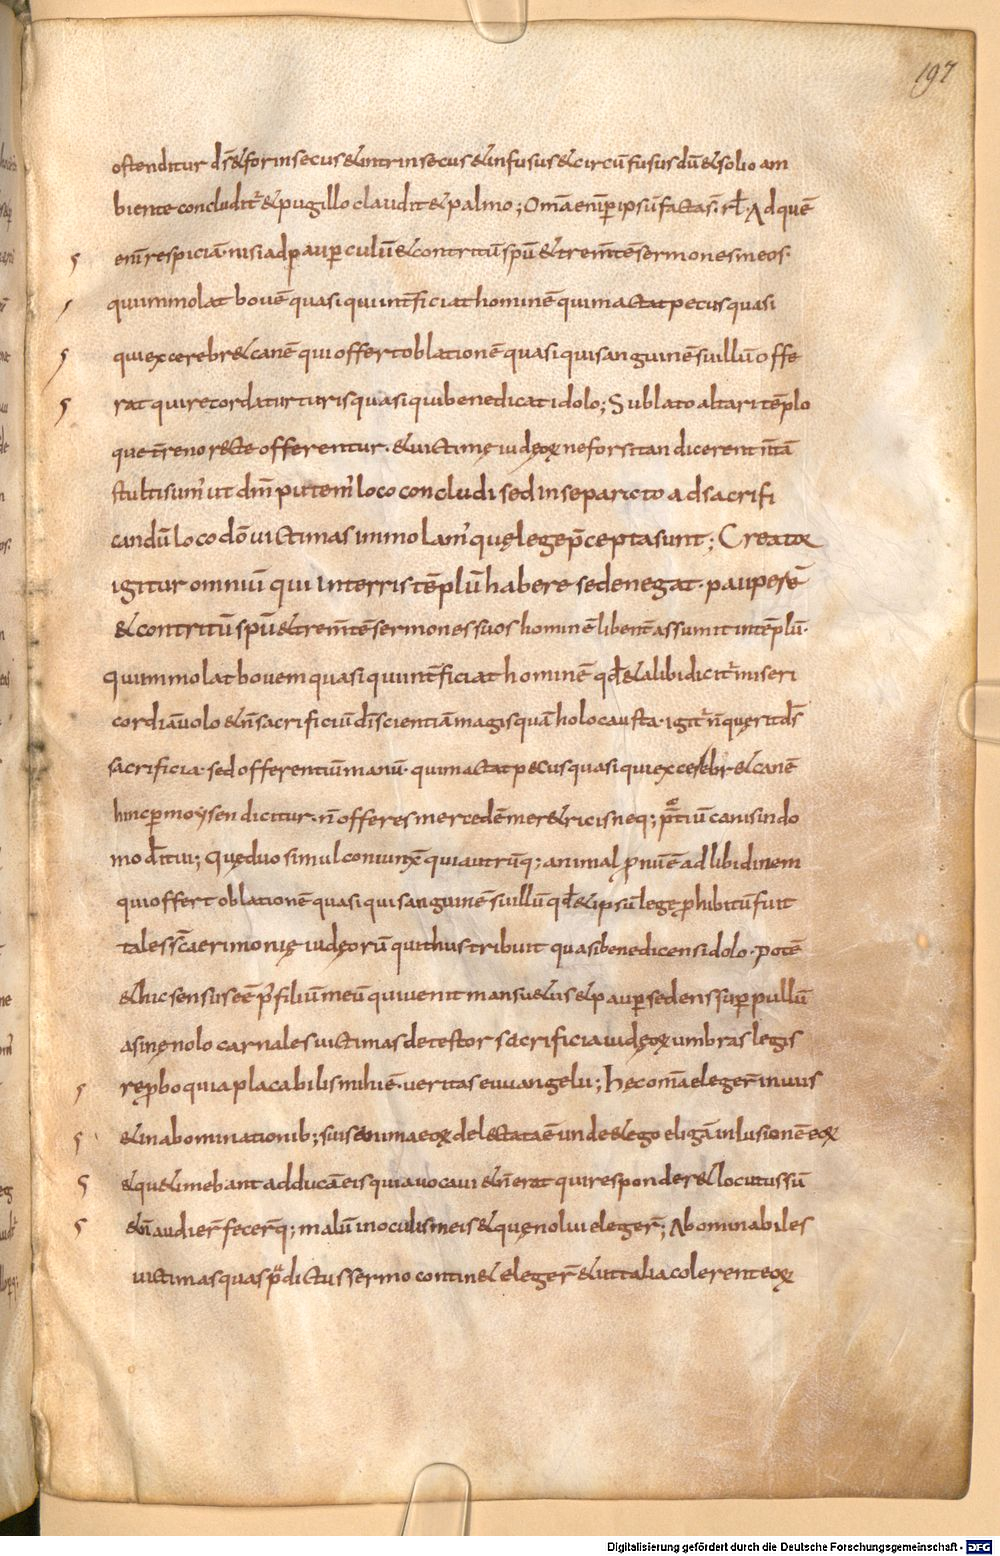 197
ostenditur dс̄ & forinsecus & intrinsecus & infusus & circū fusus dū & solio am
biente concluditᷣ & pugillo claudit & palmo; Omīa enī p̲ ipsū facta s̄ rl̄. Ad quē
enī respiciā nisi ad p̲auperculū & contritū spū & trem̄tē sermones meos.
qui immolat bovē quasi qui int̄ficiat hominē qui mactat pecus quasi
qui excerebr& canē qui offert oblationē quasi qui sanguinē suillū offe
rat qui recordatur turis quasi qui benedicat idolo; Sublato altari tēplo
que t̄reno recte offerentur. & uictimę iudęoꝝ ne forsitan dicerent n̄ tā
stulti sumᷣ ut dm̄ putemᷣ loco concludi sed in separato ad sacrifi
candū loco dō uictimas immolamᷣ quę lege p̄cepta sunt; Creator
igitur omniū qui in terris tēplū habere se denegat. pauperē
& contritū spū & trem̄tē sermones suos hominē libent̄ assumit in tēplū.
qui immolat bovem quasi qui int̄ficiat hominē qd̄ & alibi dicitᷣ miseri
cordiā uolo & n̄ sacrificiū dī scientiā magis quā holocausta. igitᷣ n̄ quęrit ds̄
sacrificia. sed offerentiū manū. qui mactat pecus quasi qui excerebr& canē
hinc p̲ moysen dicitur. n̄ offeres mercedē mer&ricis neq; p̄tiū canis in do
mo dī tui; Quę duo simul coniunx̄ quia utrūq; animal p̱nū ē ad libidinem
qui offert oblationē quasi qui sanguinē suillū qd̄ & ipsū lege p̱hibitū fuit
tales s̄ caerimonię iudęorū qui thus tribuit quasi benedicens idolo. potē
& hic sensus eē p̱p̱ filiū meū qui uenit mansu&us & paup̲ sedens sup̲ pullū
asinę nolo carnales uictimas detestor sacrificia iudęoꝝ umbras legis
rep̱bo quia placabilis mihi ē ueritas euuangelii; hęc omīa eleger̄ in uiis
& in abominationib; suis anima eoꝝ delectata ē unde & ego eligā inlusionē eoꝝ
& que timebant adducā eis quia uocaui & n̄ erat qui responder& locutus sū
& n̄ audier̄ fecer̄q; malū in oculis meis & quę nolui eleger̄; Abominabiles
uictimas quas p̄dictus sermo contin& eleger̄ & ut talia colerent eoꝝ
Digitalisierung gefördert durch die Deutsche Forschungsgemeinschaft - DFG